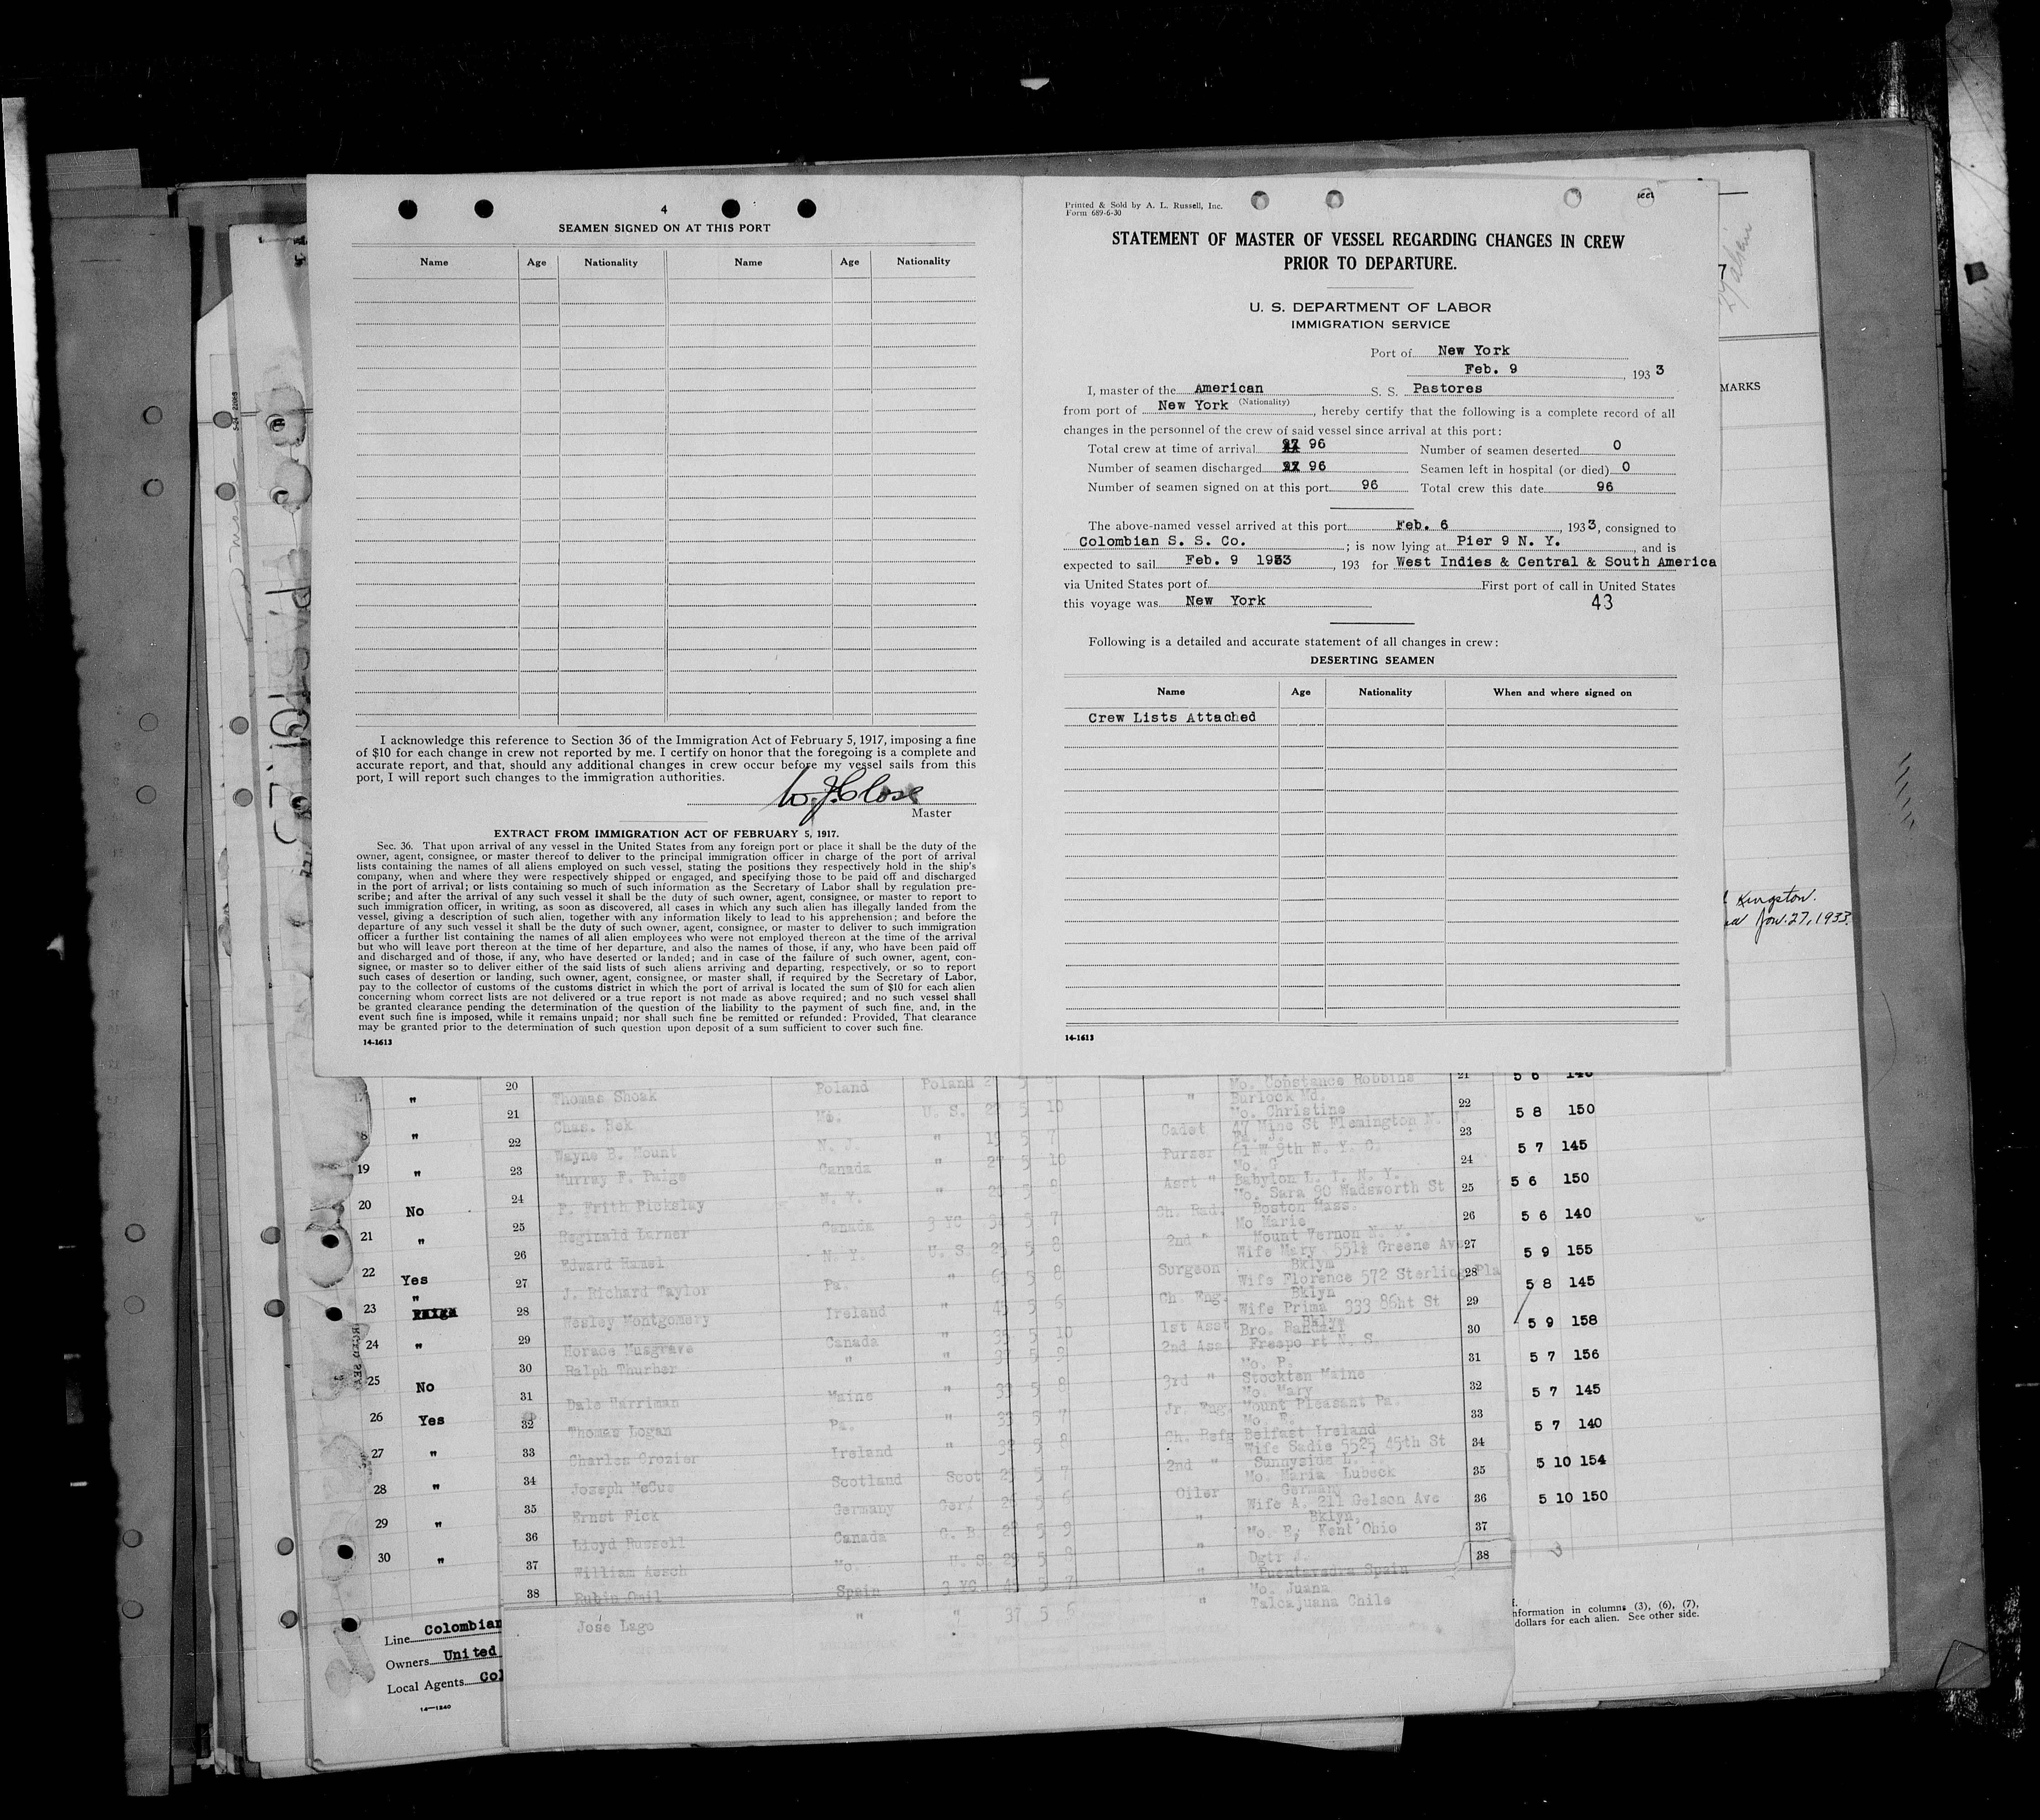 4
SEAMEN SIGNED ON AT THIS PORT
Name Age Nationality Name Age Nationality
I acknowledge this reference to Section 36 of the Immigration Act of February 5, 1917, imposing a fine
of $10 for each change in crew not reported by me. I certify on honor that the foregoing is a complete and
accurate report, and that, should any additional changes in crew occur before my vessel sails from this
port, I will report such changes to the immigration authorities.
W. J. Close
Master
EXTRACT FROM IMMIGRATION ACT OF FEBRUARY 5, 1917.
Sec. 36. That upon arrival of any vessel in the United States from any foreign port or place it shall be the duty of the
owner, agent, consignee, or master thereof to deliver to the principal immigration officer in charge of the port of arrival
lists containing the names of all aliens employed on such vessel, stating the positions they respectively hold in the ship's
company, when and where they were respectively shipped or engaged, and specifying those to be paid off and discharged
in the port of arrival; or lists containing so much of such information as the Secretary of Labor shall by regulation pre-
scribe; and after the arrival of any such vessel it shall be the duty of such owner, agent, consignee, or master to report to
such immigration officer, in writing, as soon as discovered, all cases in which any such alien has illegally landed from the
vessel, giving a description of such alien, together with any information likely to lead to his apprehension; and before the
departure of any such vessel it shall be the duty of such owner, agent, consignee, or master to deliver to such immigration
officer a further list containing the names of all alien employees who were not employed thereon at the time of the arrival
but who will leave port thereon at the time of her departure, and also the names of those, if any, who have been paid off
and discharged and of those, if any, who have deserted or landed; and in case of the failure of such owner, agent, con-
signee, or master so to deliver either of the said lists of such aliens arriving and departing, respectively, or so to report
such cases of desertion or landing, such owner, agent, consignee, or master shall, if required by the Secretary of Labor,
pay to the collector of customs of the customs district in which the port of arrival is located the sum of $10 for each alien
concerning whom correct lists are not delivered or a true report is not made as above required; and no such vessel shall
be granted clearance pending the determination of the question of the liability to the payment of such fine, and, in the
event such fine is imposed, while it remains unpaid; nor shall such fine be remitted or refunded: Provided, That clearance
may be granted prior to the determination of such question upon deposit of a sum sufficient to cover such fine.
14-1613
Printed & Sold by A. L. Russell, Inc.
Form 689-6-30
STATEMENT OF MASTER OF VESSEL REGARDING CHANGES IN CREW
PRIOR TO DEPARTURE.
U. S. DEPARTMENT OF LABOR
IMMIGRATION SERVICE
Port of New York
Feb. 9, 193 3
I, master of the American S. S. Pastores
from port of New York (Nationality), hereby certify that the following is a complete record of all
changes in the personnel of the crew of said vessel since arrival at this port:
Total crew at time of arrival 96 Number of seamen deserted 0
Number of seamen discharged 96 Seamen left in hospital (or died) 0
Number of seamen signed on at this port 96 Total crew this date 96
The above-named vessel arrived at this port Feb. 6, 193 3, consigned to
Colombian S. S. Co.; is now lying at Pier 9 N. Y., and is
expected to sail Feb. 9 1933, 193 for West Indies & Central & South America
via United States port of First port of call in United States
this voyage was New York 43
Following is a detailed and accurate statement of all changes in crew:
DESERTING SEAMEN
Name Age Nationality When and where signed on
Crew Lists Attached
14-1613
MARKS
Kingston.
Jan. 27, 1933.
20 Poland Poland Mo. Constance Robbins
Thomas Shoak Burlock Md.
21 U. S. 5 10 Mo. Christine 22 5 8 150
Chas. Hek Cadet 47 Mine St Flemington N. J.
22 N. J. " 5 7 23
19 " Wayne B. Mount Purser 61 W 9th N. Y. C. 5 7 145
23 Canada " 27 5 10 Mo. G 24
Murray F. Paige Asst " Babylon L. I. N. Y.
24 N. Y. " 5 8 Mo. Sara 90 Wadsworth St 25 5 6 150
20 No F. Frith Picksley Ch. Rad. Boston Mass.
25 Canada 3 YC 5 7 Mo Marie 26 5 6 140
21 " Reginald Larner 2nd " Mount Vernon N. Y.
26 N. Y. U. S. 5 8 Wife Mary 551½ Greene Ave 27 5 9 155
22 Yes Edward Hamel Surgeon Bklyn
27 Pa " 5 8 Wife Florence 572 Sterling Pla 28 5 8 145
23 " J. Richard Taylor Ch. Eng. Bklyn
28 Ireland " 45 5 6 Wife Prima 933 86ht St 29
Wesley Montgomery 1st Asst Bklyn 5 9 158
29 Canada " 5 10 Bro. Randall 30
24 " Horace Musgrave 2nd Asst Freeport N. S.
30 " " 5 9 Mo. P. 31 5 7 156
Ralph Thurber 3rd " Stockton Maine
25 No 31 Maine " 5 8 Mo. Mary 32 5 7 145
Dale Harriman Jr. Eng. Mount Pleasant Pa.
26 Yes 32 Pa. " 5 7 Mo. E. 33 5 7 140
Thomas Logan Ch. Refg Belfast Ireland
27 " 33 Ireland " 5 8 Wife Sadie 5525 45th St 34
Charles Crozier 2nd " Sunnyside L. I. 5 10 154
28 " 34 Scotland Scot 5 7 Mo. Maria Lubeck 35
Joseph McCue Oiler Germany
35 Germany Ger/ 5 6 Wife A. 211 Gelson Ave 36 5 10 150
29 " Ernst Fick " Bklyn,
36 Canada G. B 5 9 Mo. E, Kent Ohio 37
30 " Lloyd Russell "
37 Mo. U. S. 5 8 Dgtr J. 38
William Aesch " Puentaradra Spain
38 Spain 3 YC 5 7 Mo. Juana
Rubin Gail " Talcajuana Chile
" " 37 5 6
José Lago
Line Colombian
Owners United
Local Agents Col
14—1240
information in columns (3), (6), (7),
dollars for each alien. See other side.